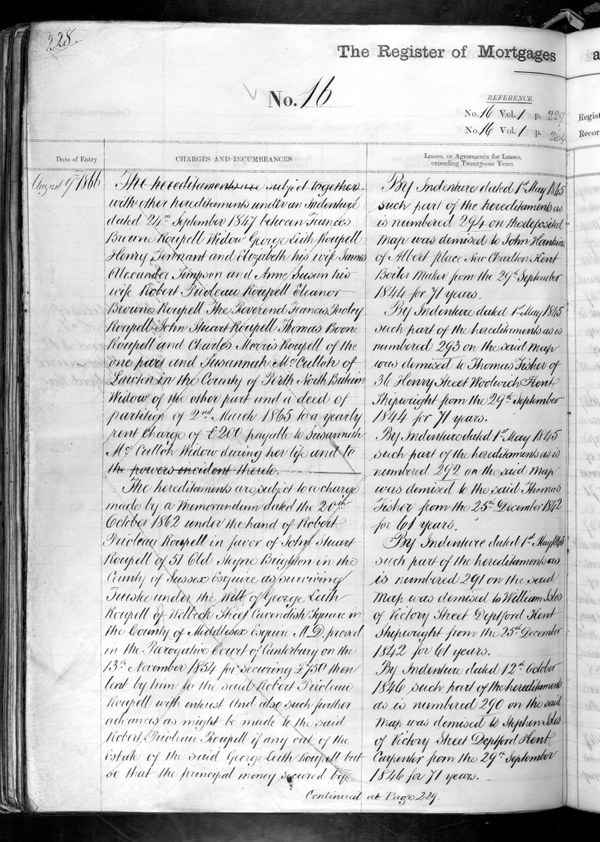 228.
The Register of Mortgages
a
No. 16
REFERENCE.
No. 16 Vol. 1 p. 229
No. 16 Vol. 1 p. 264
Regist
Recor
Date of Entry
CHARGES AND INCUMBRANCES
Leases, or Agreements for Leases,
exceeding Twenty-one Years
August 9th 1866
The hereditaments are subject together
with other hereditaments under an Indenture
dated 24th September 1847 between Frances
Browne Roupell Widow George Leith Roupell
Henry Tennant and Elizabeth his wife James
Alexander Simpson and Anne Susan his
wife Robert Prioleau Roupell Eleanor
Browne Roupell The Reverend Francis
Roupell John Stuart Roupell Thomas Boone
Roupell and Charles Morris Roupell of the
one part and Susannah McCulloh of
in the County of Perth North Britain
Widow of the other part and a deed of
partition of 2nd March 1865 to a yearly
rent charge of £200 payable to Susannah
McCulloh Widow during her life and to
the powers incident thereto.
The hereditaments are subject to a charge
made by a Memorandum dated the 20th
October 1862 under the hand of Robert
Prioleau Roupell in favor of John Stuart
Roupell of 51 Old Steyne Brighton in the
County of Sussex Esquire as surviving
Trustee under the Will of George Leith
Roupell of Welbeck Street Cavendish Square in
the County of Middlesex Esquire M.D. proved
in the Prerogative Court of Canterbury on the
13th November 1854 for securing £750 then
lent by him to the said Robert Prioleau
Roupell with interest And also such further
advances as might be made to the said
Robert Prioleau Roupell if any out of the
Estate of the said George Leith Roupell but
so that the principal money secured by
Continued at Page 229.
By Indenture dated 1st May 1845
such part of the hereditaments as
is numbered 294 on the deposited
Map was demised to John
of Albert place New Charlton Kent
Boiler Maker from the 29th September
1844 for 71 years.
By Indenture dated 1st May 1845
such part of the hereditaments as is
numbered 293 on the said Map
was demised to Thomas Fisher of
36 Henry Street Woolwich Kent
Shipwright from the 29th September
1844 for 71 years.
By Indenture dated 1st May 1845
such part of the hereditaments as is
numbered 292 on the said Map
was demised to the said Thomas
Fisher from the 25th December 1842
for 61 years.
By Indenture dated 1st May 1845
such part of the hereditaments as
is numbered 291 on the said
Map was demised to William
of Victory Street Deptford Kent
Shipwright from the 25th December
1842 for 61 years.
By Indenture dated 12th October
1846 such part of the hereditaments
as is numbered 290 on the said
Map was demised to Stephen
of Victory Street Deptford Kent
Carpenter from the 29th September
1846 for 71 years.